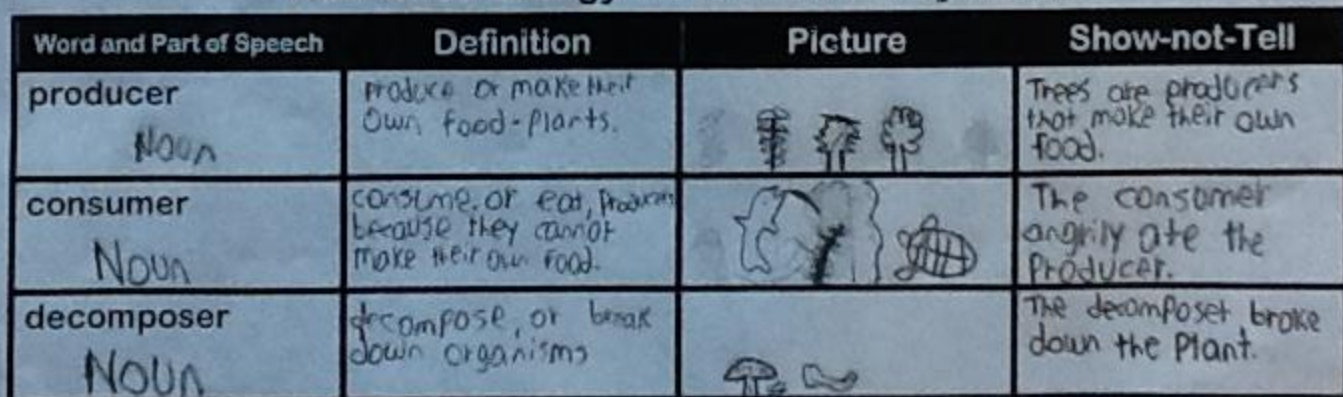 Word and Part of Speech Definition Picture Show-not-Tell
producer
Noun
produce or make their
own food-plants.
Trees are producers
that make their own
food.
consumer
Noun
consume, or eat, producers
because they cannot
make their own food.
The consomer
angrily ate the
Producer.
decomposer
Noun
decompose, or break
down organisms
The decomposer broke
down the Plant.